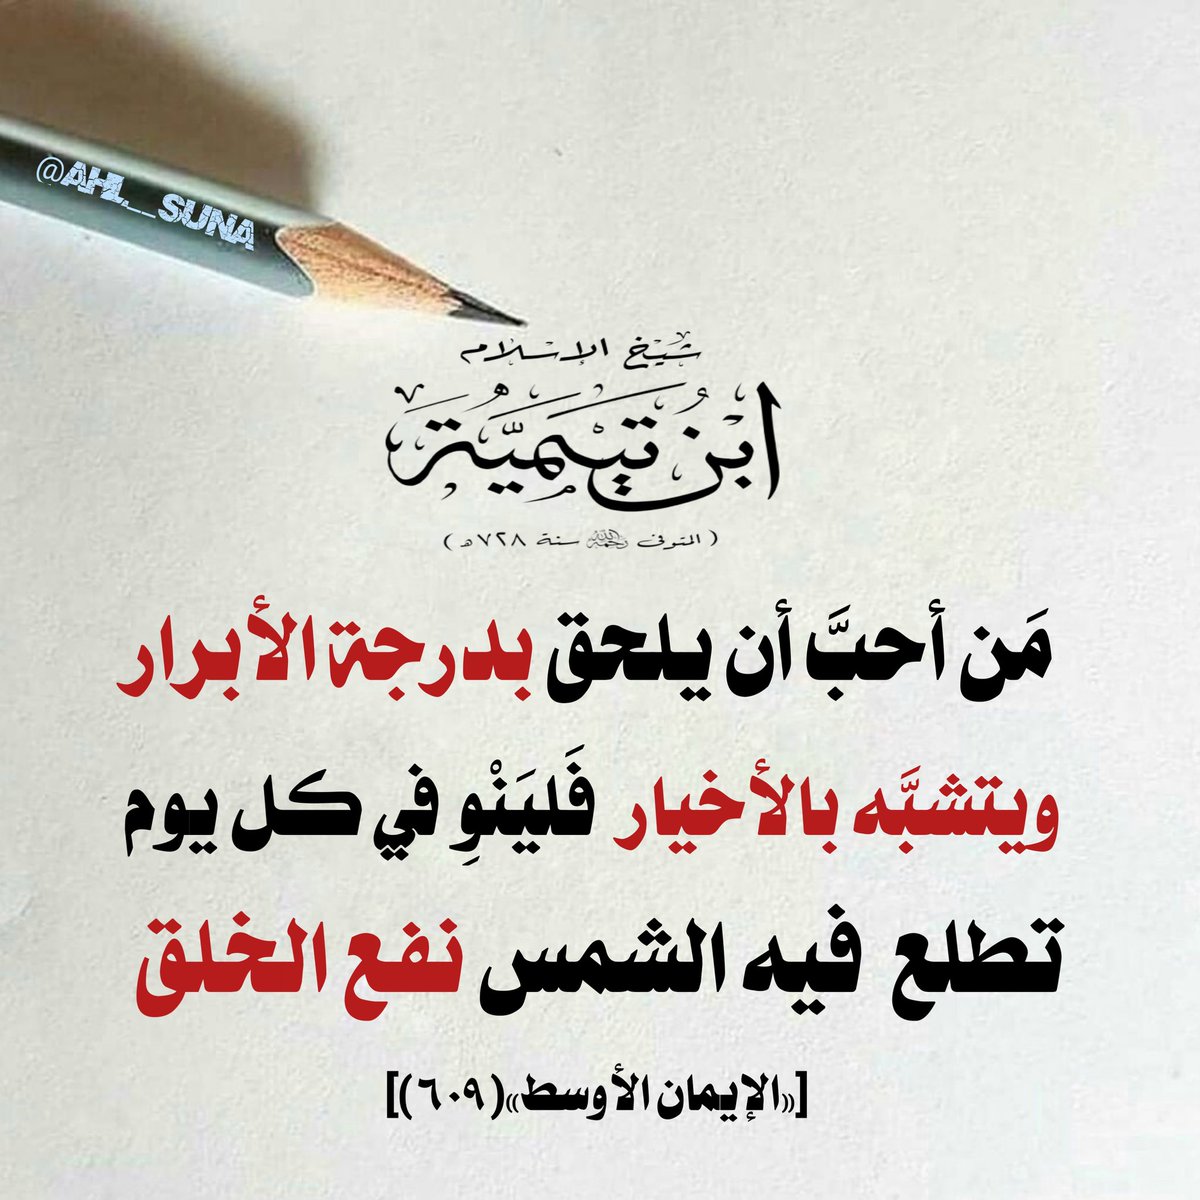 @AHL__SUNA
شيخ الإسلام
ابن تيميَّة
(المتوفى رحمه الله سنة ٧٢٨هـ)
مَن أحبَّ أن يلحق بدرجة الأبرار
ويتشبَّه بالأخيار فَليَنْوِ في كل يوم
تطلع فيه الشمس نفع الخلق
[«الإيمان الأوسط»(٦٠٩)]